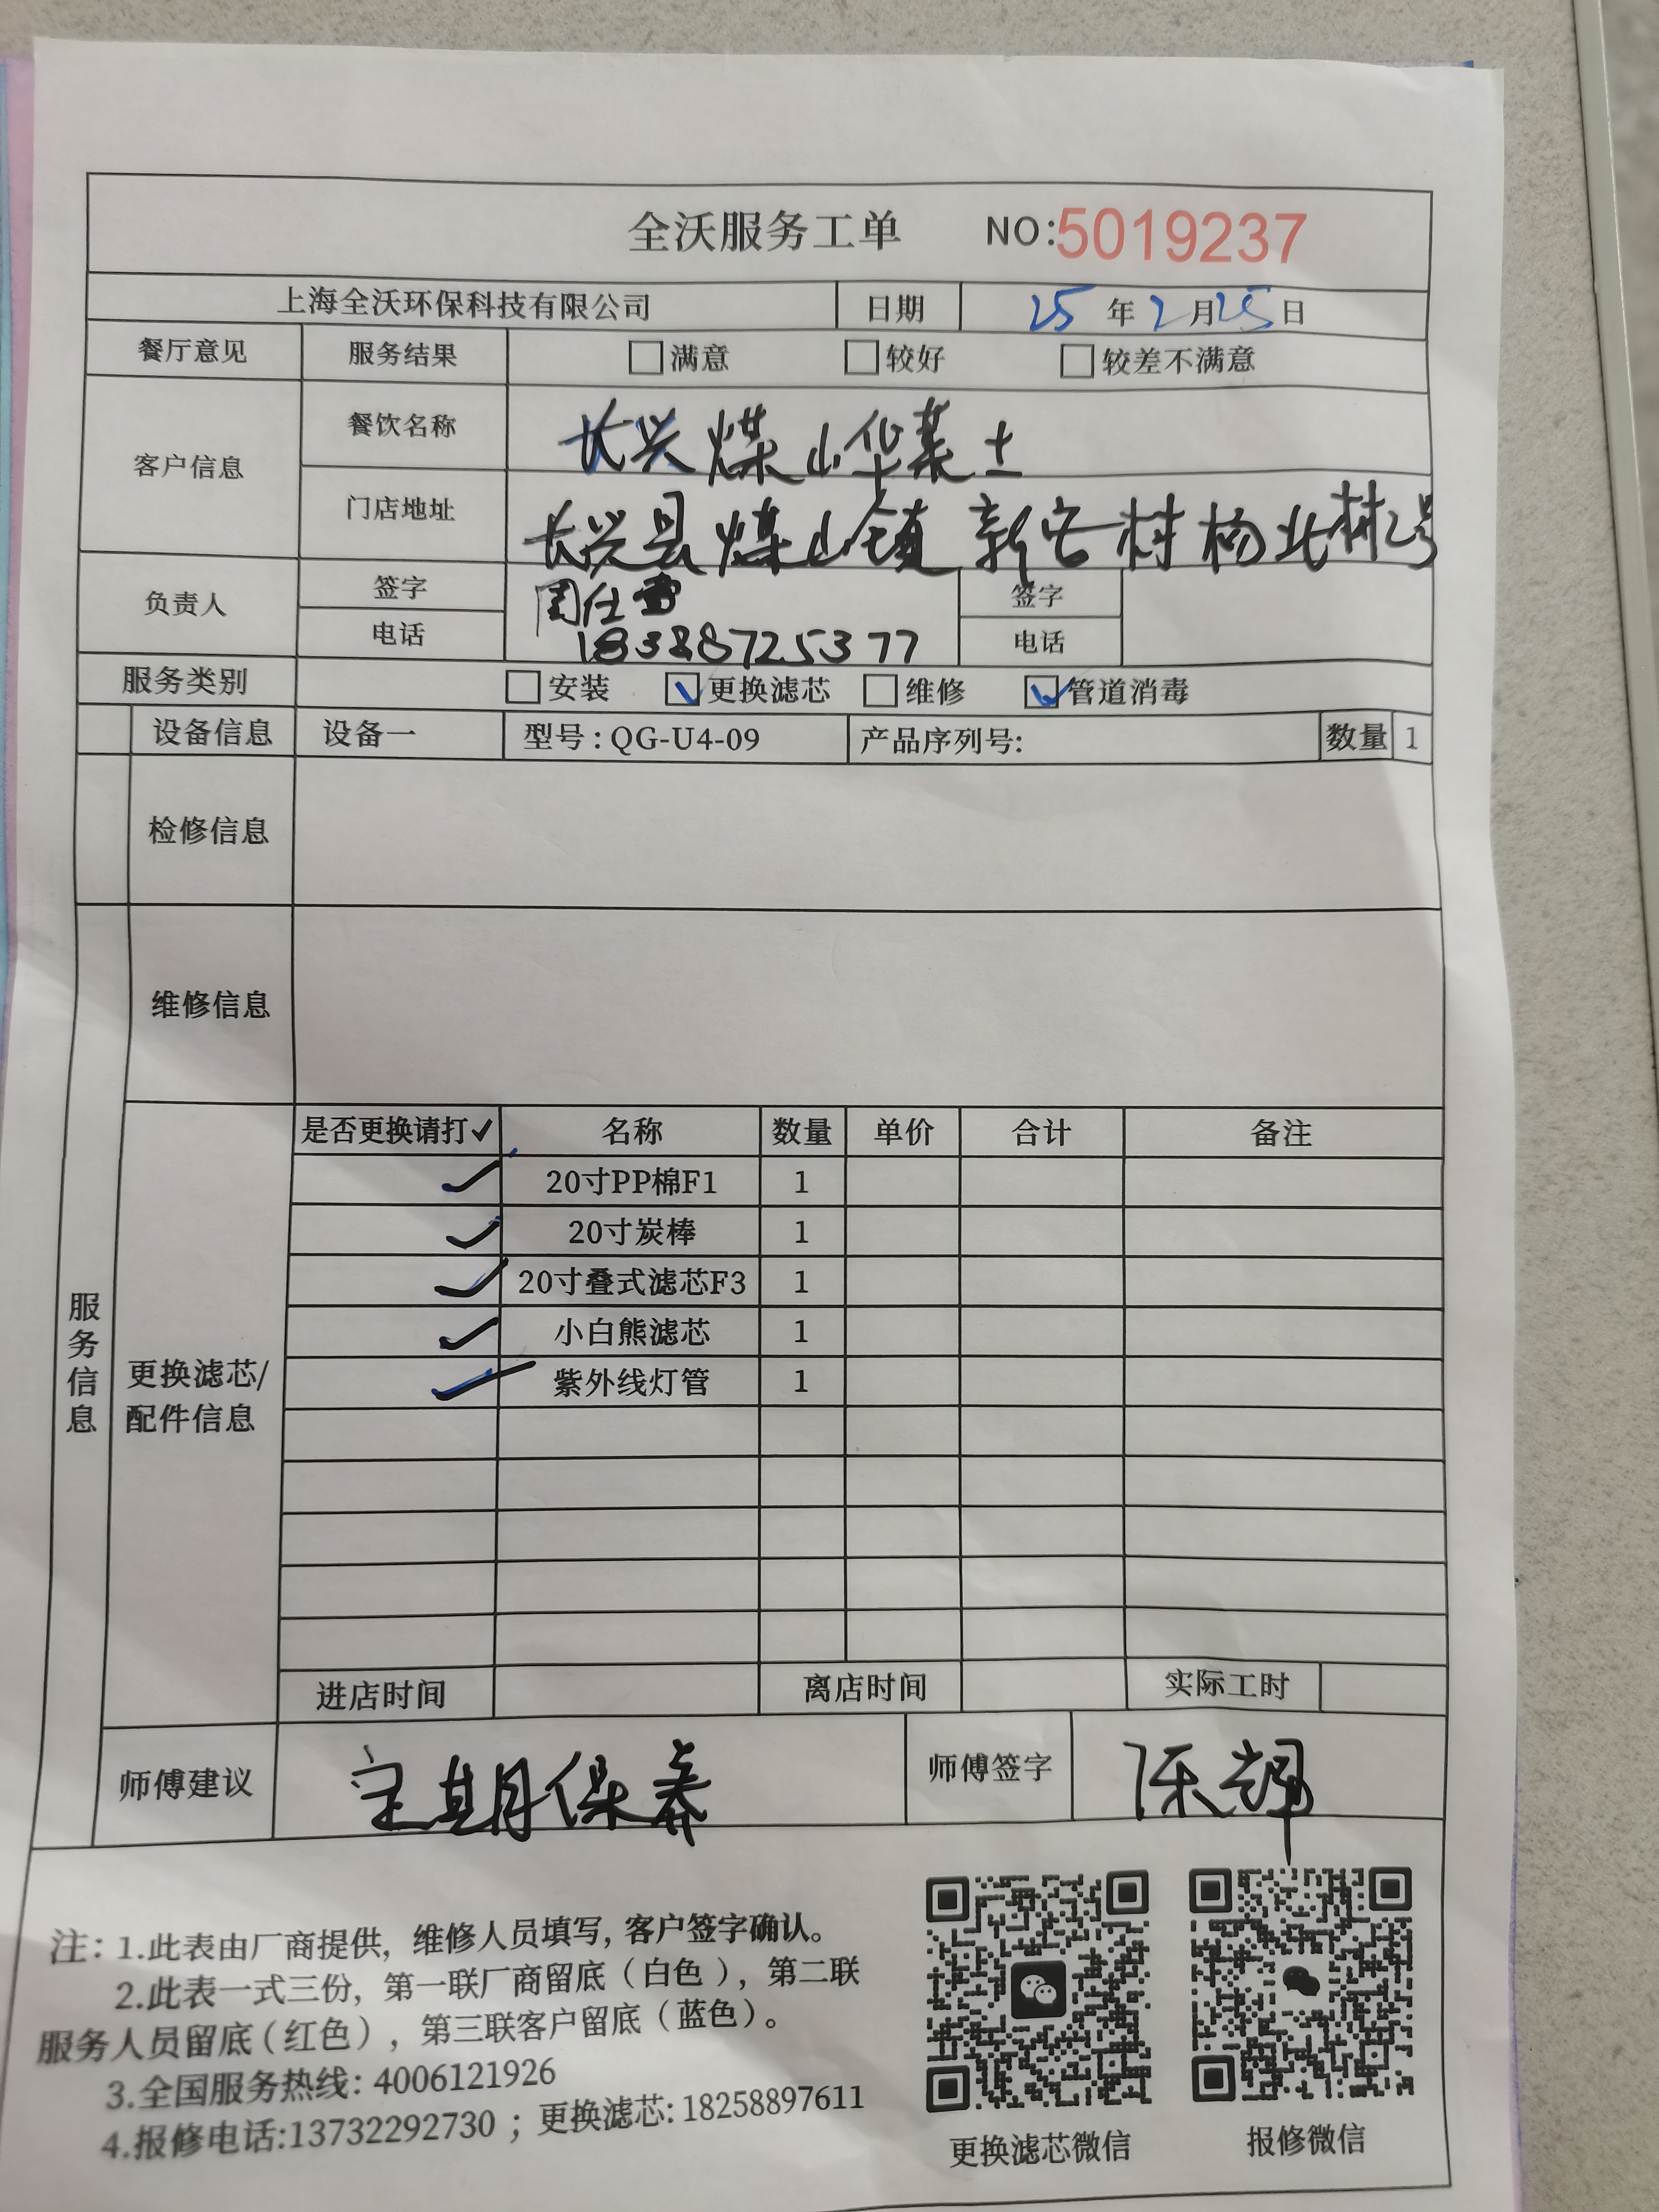 全沃服务工单 NO:5019237
上海全沃环保科技有限公司 日期 25年2月25日
餐厅意见 服务结果 □满意 □较好 □较差不满意
客户信息 餐饮名称 长兴煤山华莱士
门店地址 长兴县煤山镇新安村杨北村2号
负责人 签字 周仕 签字
电话 18388725377 电话
服务类别 □安装 ☑更换滤芯 □维修 ☑管道消毒
设备信息 设备一 型号:QG-U4-09 产品序列号: 数量 1
检修信息
维修信息
服务信息
更换滤芯/配件信息
是否更换请打✓ 名称 数量 单价 合计 备注
✓ 20寸PP棉F1 1
✓ 20寸炭棒 1
✓ 20寸叠式滤芯F3 1
✓ 小白熊滤芯 1
✓ 紫外线灯管 1
进店时间 离店时间 实际工时
师傅建议 定期保养 师傅签字 陈辉
注: 1.此表由厂商提供, 维修人员填写, 客户签字确认。
2.此表一式三份, 第一联厂商留底(白色), 第二联
服务人员留底(红色), 第三联客户留底(蓝色)。
3.全国服务热线: 4006121926
4.报修电话:13732292730 ; 更换滤芯: 18258897611
更换滤芯微信 报修微信